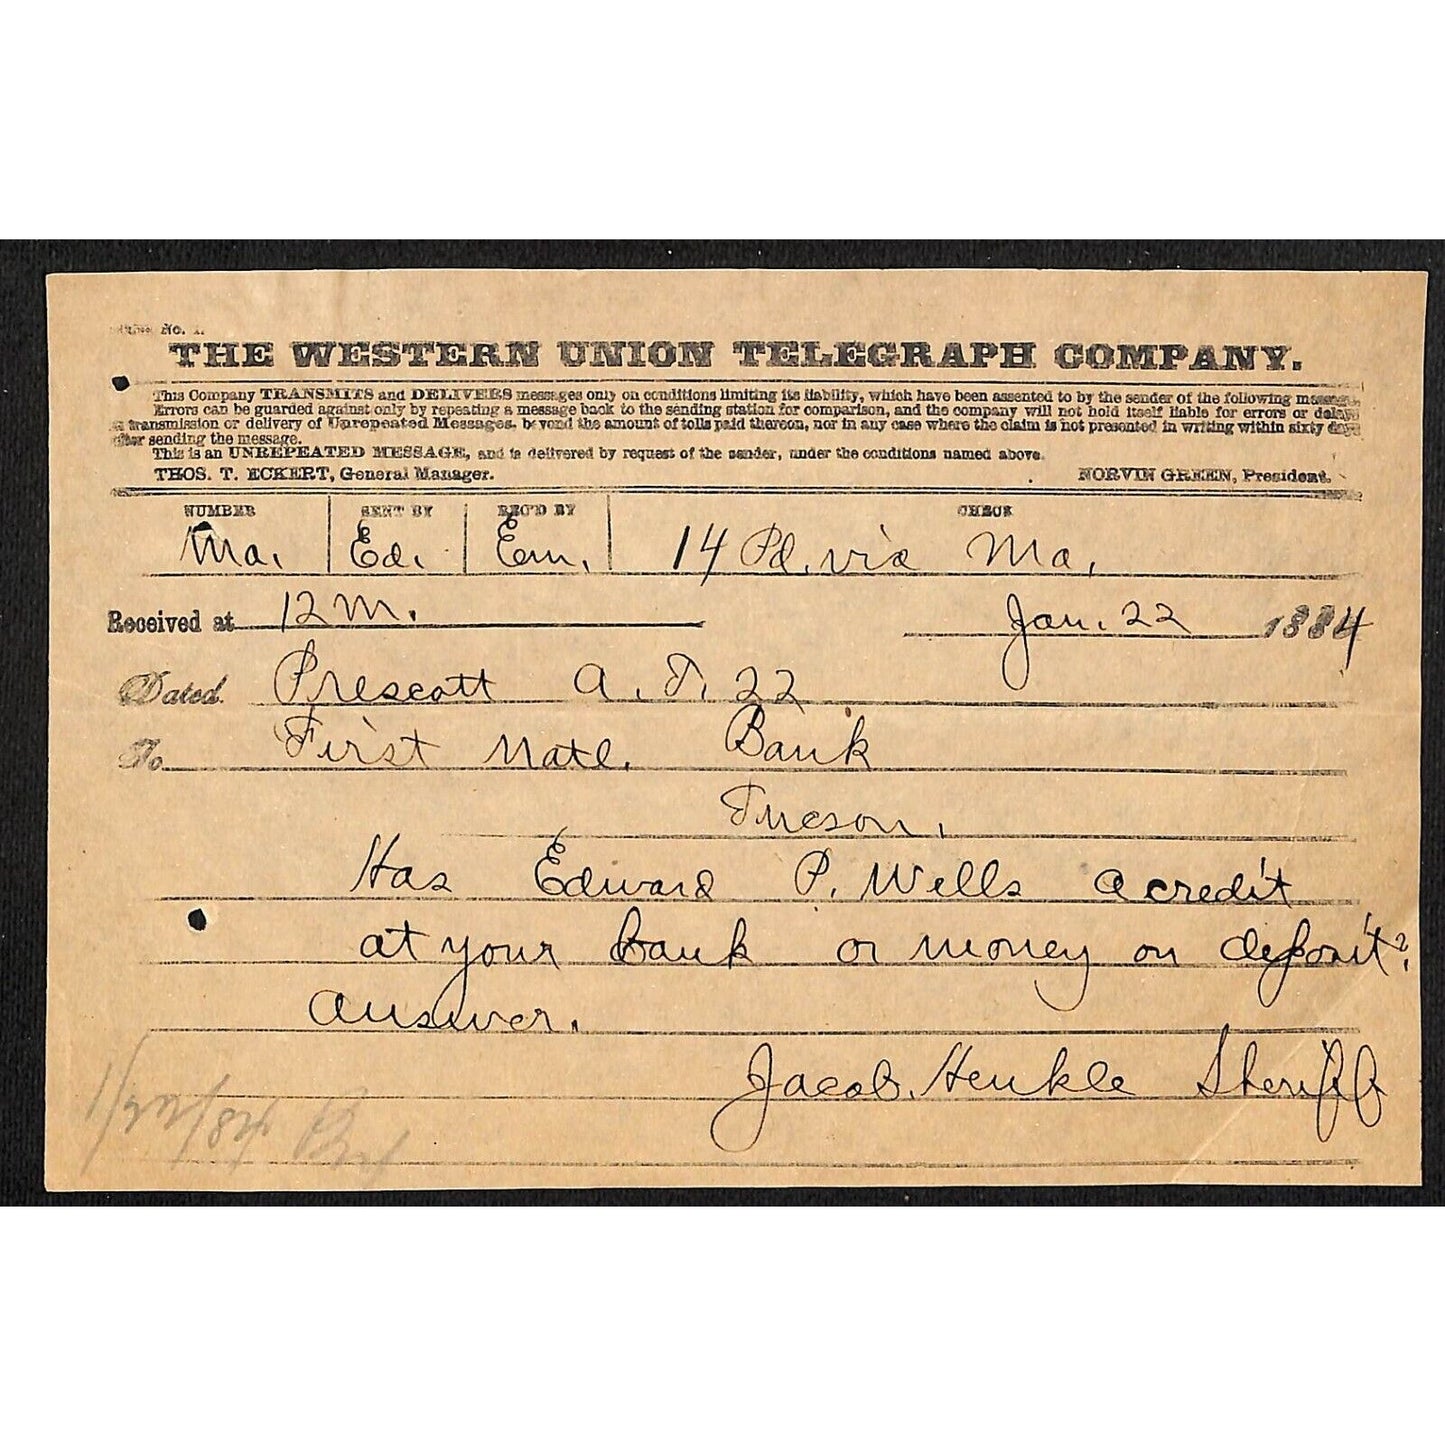 No. 1.
THE WESTERN UNION TELEGRAPH COMPANY.
This Company TRANSMITS and DELIVERS messages only on conditions limiting its liability, which have been assented to by the sender of the following message.
Errors can be guarded against only by repeating a message back to the sending station for comparison, and the company will not hold itself liable for errors or delays
transmission or delivery of Unrepeated Messages, beyond the amount of tolls paid thereon, nor in any case where the claim is not presented in writing within sixty days
after sending the message.
This is an UNREPEATED MESSAGE, and is delivered by request of the sender, under the conditions named above.
THOS. T. ECKERT, General Manager. NORVIN GREEN, President.
NUMBER SENT BY REC'D BY CHECK
Ma. Ed. Em. 14 Pd. via Ma.
Received at 12 M. Jan. 22 1884
Dated Prescott A. T. 22
To First Natl. Bank
Tucson.
Has Edward P. Wells a credit
at your bank or money on deposit?
answer.
Jacob. Henkle Sheriff
1/22/84